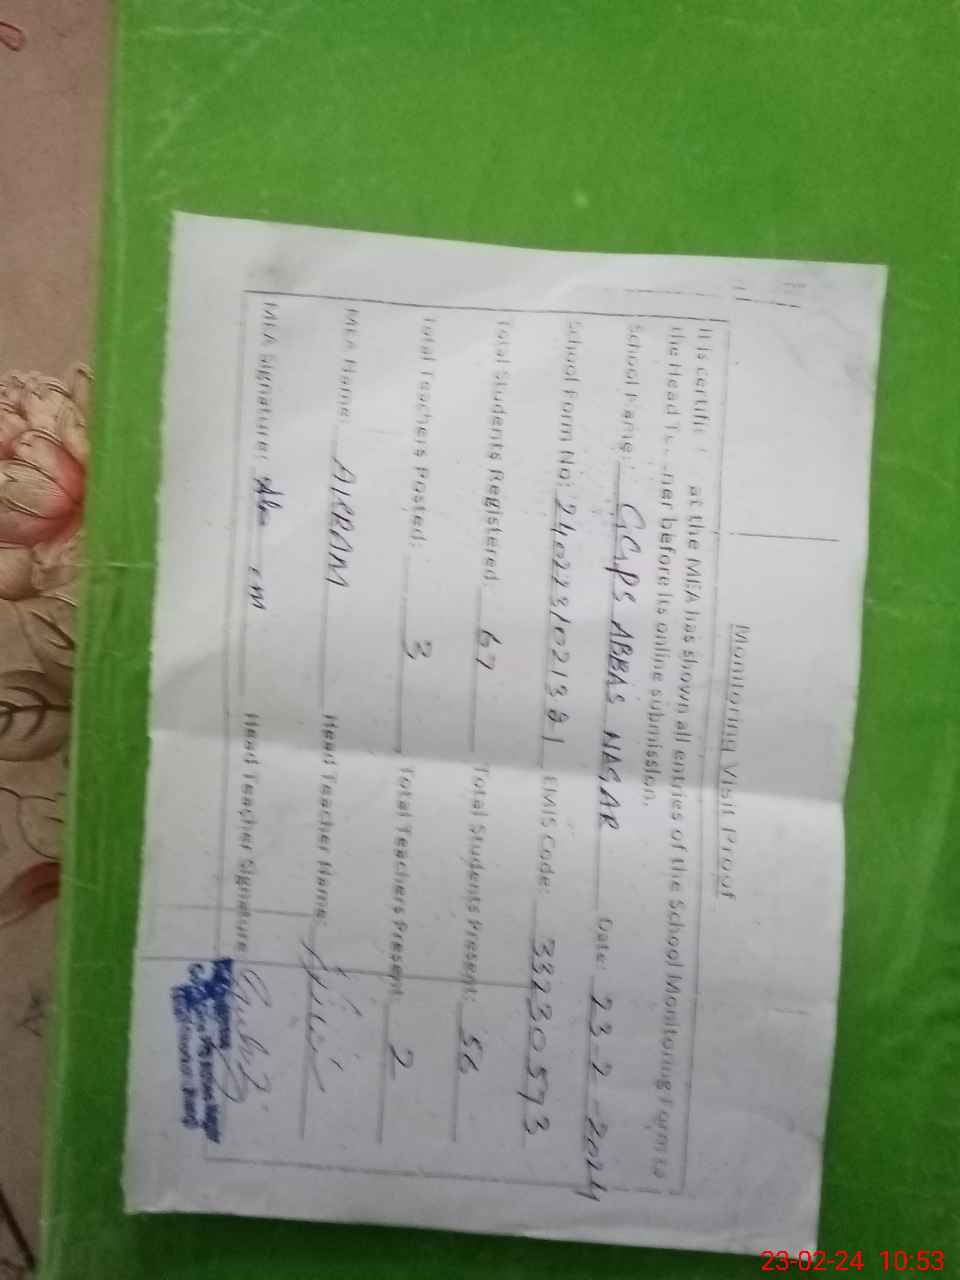 Monitoring Visit Proof
It is at the MEA has shown all entries of the School Monitoring Form to
the Head before its online submission.
School Name: GGPS ABBAS NAGAR Date: 23-2-2024
School Form No: EMIS Code: 33230573
Total Students Registered: 67 Total Students Present: 56
Total Teachers Posted: 3 Total Teachers Present: 2
MEA Name: AKRAM Head Teacher Name:
MEA Signature: Head Teacher Signature:
23-02-24 10:53